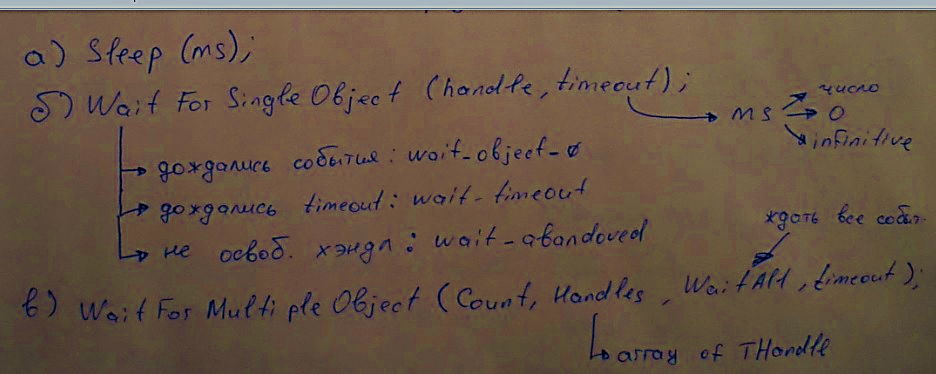 а) Sleep (ms);
б) Wait For Single Object (handle, timeout); → ms → число
→ 0
→ infinitive
→ дождались события: wait-object-0
→ дождались timeout: wait-timeout
→ не освоб. хэндл: wait-abandoved
ждать все событ.
в) Wait For Multiple Object (Count, Handles, WaitAll, timeout);
→ array of THandle